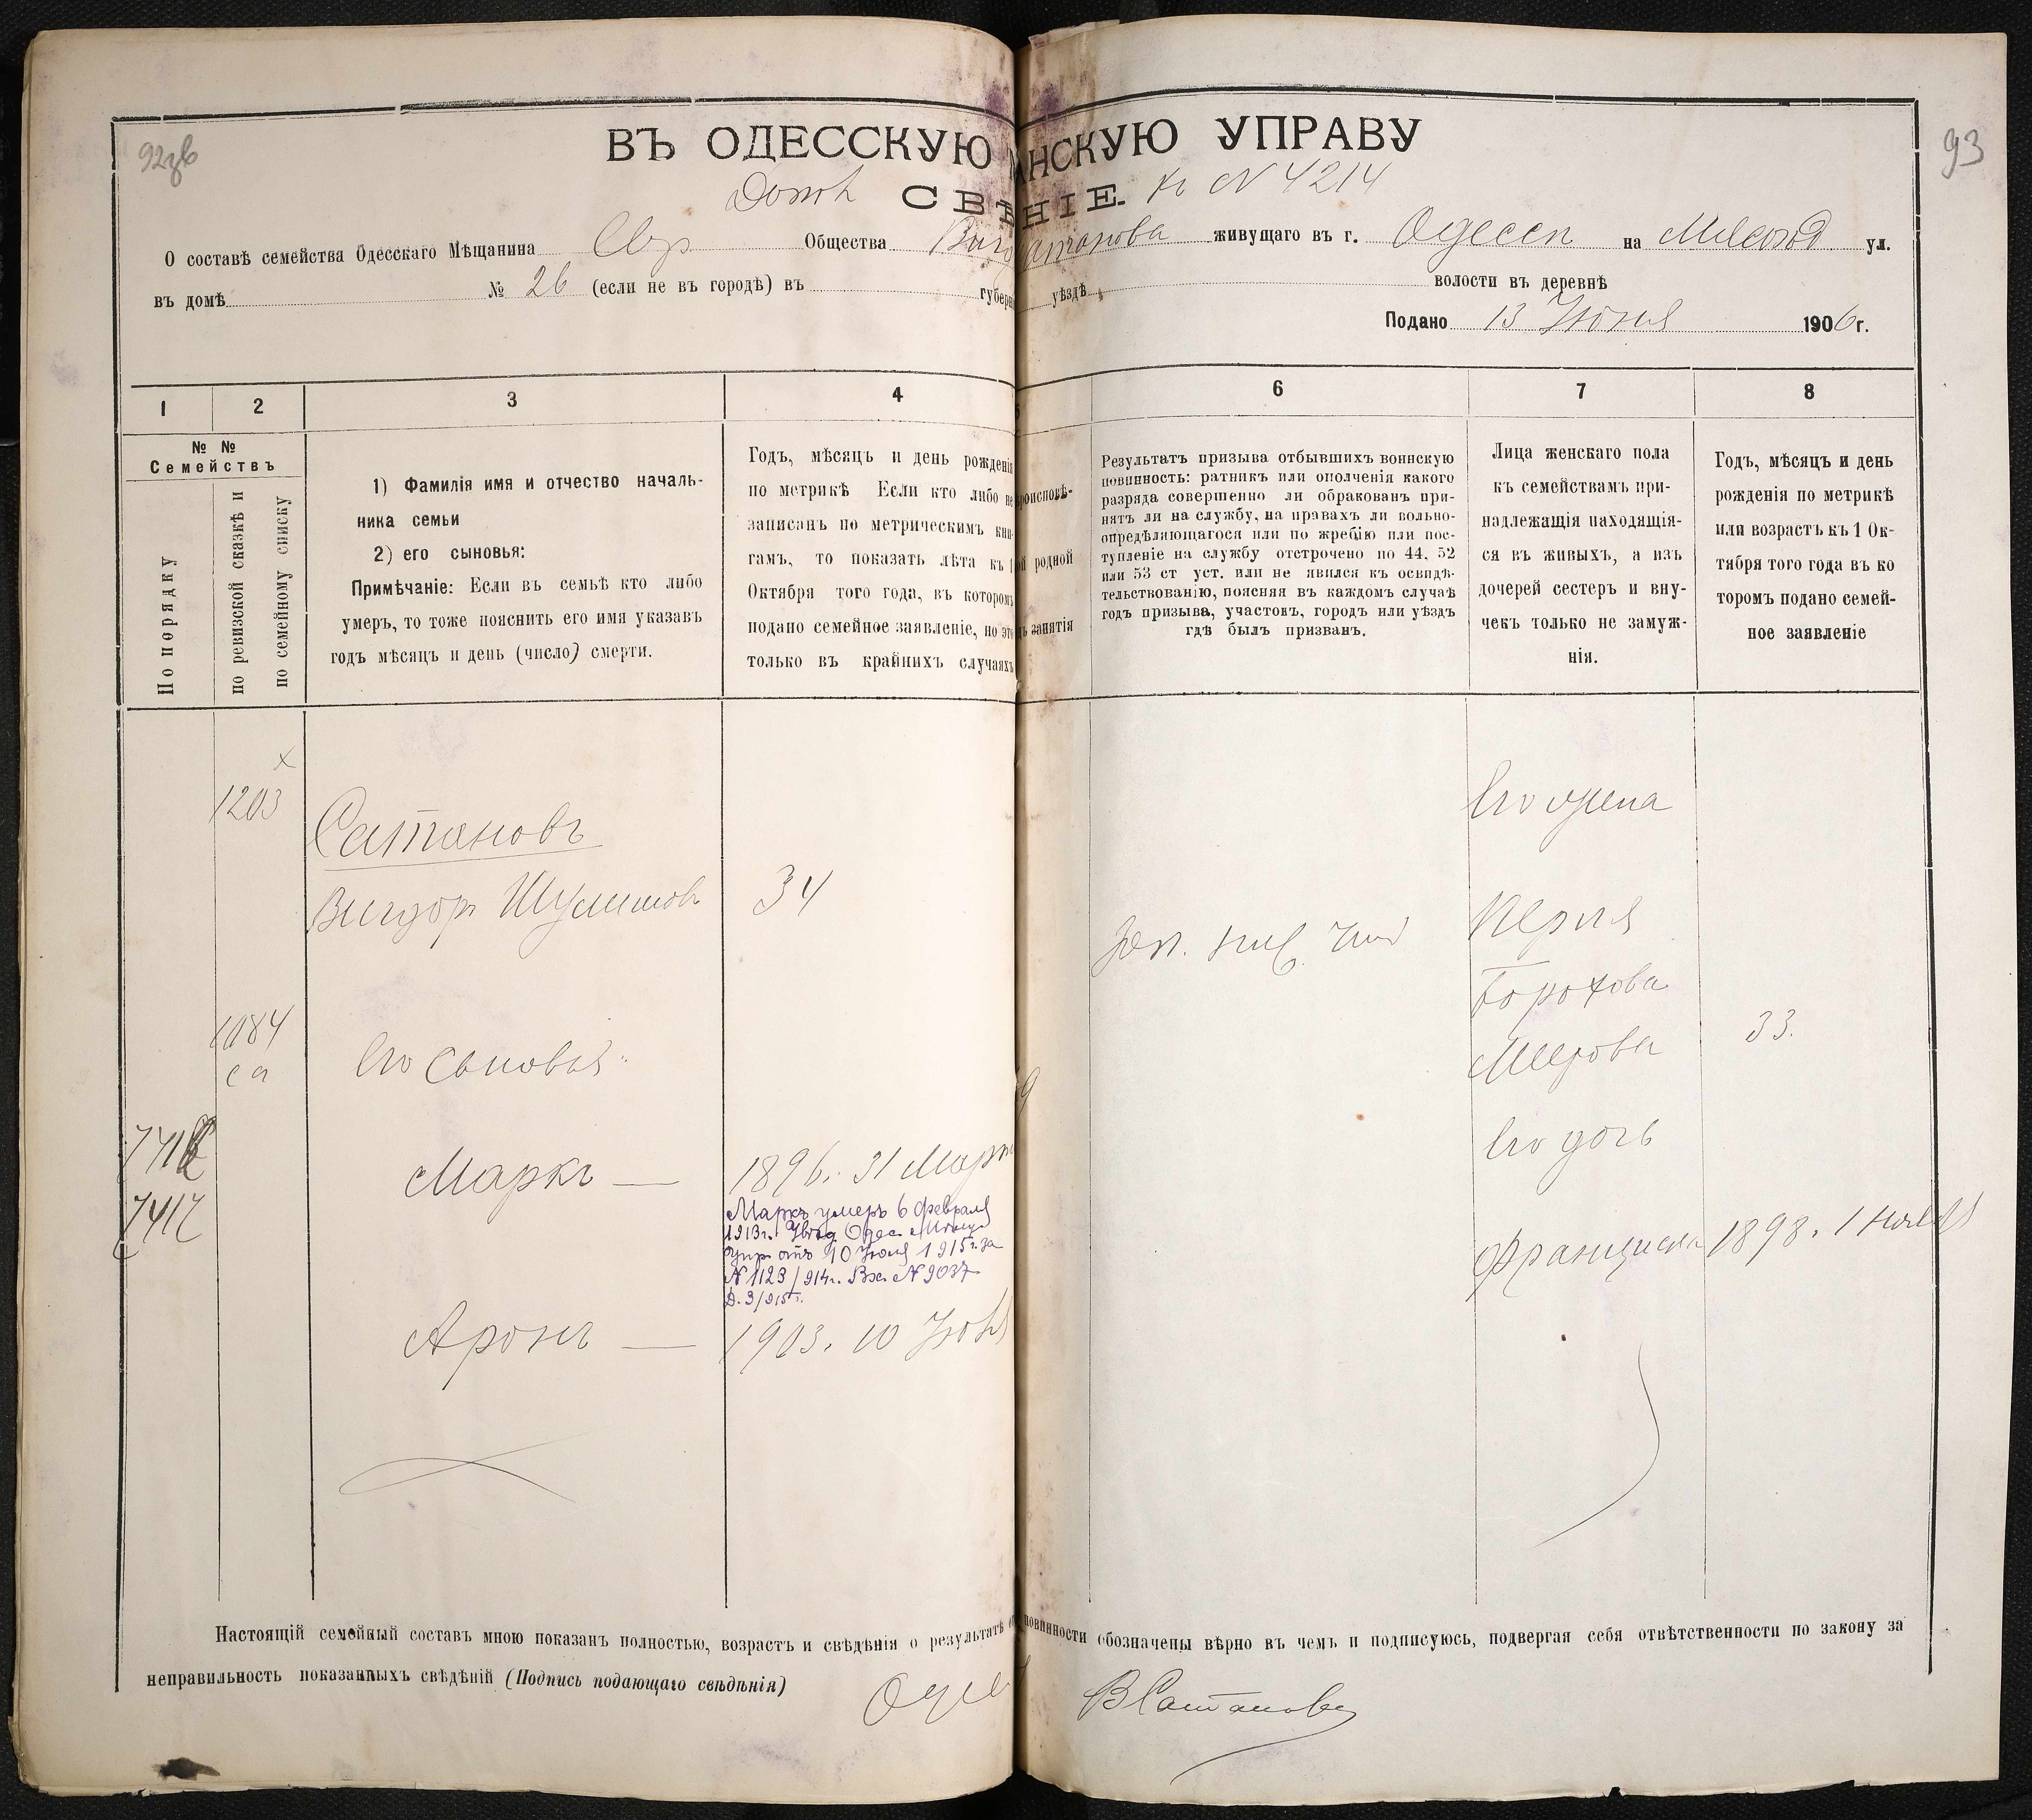 92зв
93
ВЪ ОДЕССКУЮ АНСКУЮ УПРАВУ
къ N 4214
О составѣ семейства Одесскаго Мѣщанина Евр Общества живущаго въ г. Одессѣ на ул.
въ домѣ № 26 (если не въ городѣ) въ уѣздѣ волости въ деревнѣ
Подано 13 Июня 1906 г.
1 2 3 4 6 7 8
№ № Семействъ
По порядку
по ревизской сказкѣ и
по семейному списку
1) Фамилія имя и отчество началь-
ника семьи
2) его сыновья:
Примѣчаніе: Если въ семьѣ кто либо
умеръ, то тоже пояснить его имя указавъ
годъ мѣсяцъ и день (число) смерти.
Годъ, мѣсяцъ и день рожденія
по метрикѣ Если кто либо не
записанъ по метрическимъ кни-
гамъ, то показать лѣта къ 1
Октября того года, въ которомъ
подано семейное заявленіе, но это
только въ крайнихъ случаяхъ
роисповѣ-
й родной
ъ занятія
Результатъ призыва отбывшихъ воинскую
повинность: ратникъ или ополченія какого
разряда совершенно ли обракованъ при-
нятъ ли на службу, на правахъ ли вольно-
опредѣляющагося или по жребію или пос-
тупленіе на службу отстрочено по 44. 52
или 53 ст уст. или не явился къ освидѣ-
тельствованію, поясняя въ каждомъ случаѣ
годъ призыва, участокъ, городъ или уѣздъ
гдѣ былъ призванъ.
Лица женскаго пола
къ семействамъ при-
надлежащія находящія-
ся въ живыхъ, а изъ
дочерей сестеръ и вну-
чекъ только не замуж-
нія.
Годъ, мѣсяцъ и день
рожденія по метрикѣ
или возрастъ къ 1 Ок-
тября того года въ ко
торомъ подано семей-
ное заявленіе
х
1203
Сатановъ
Его жена
Вигдоръ Шулимовъ 34
Зап. ниж. чин
Перля
Борохова
Меерова 33.
1084
са
Его сыновья:
Его дочь
7416
Маркъ — 1896. 31 Март
7417
Маркъ умеръ 6 февраля
1913г. Увѣд. Одес. Мѣщ.
Упр. отъ 10 Июля 1915г. за
N 1123/914г. Вх. N 9037
Д. 3/915г.
Франциска 1898. 1 Ноября
Аронъ — 1903. 10
Настоящій семейный составъ мною показанъ полностью, возрастъ и свѣдѣнія о результатѣ повинности обозначены вѣрно въ чемъ и подписуюсь, подвергая себя отвѣтственности по закону за
неправильность показанныхъ свѣдѣній (Подпись подающаго свѣдѣнія)
В Сатановъ